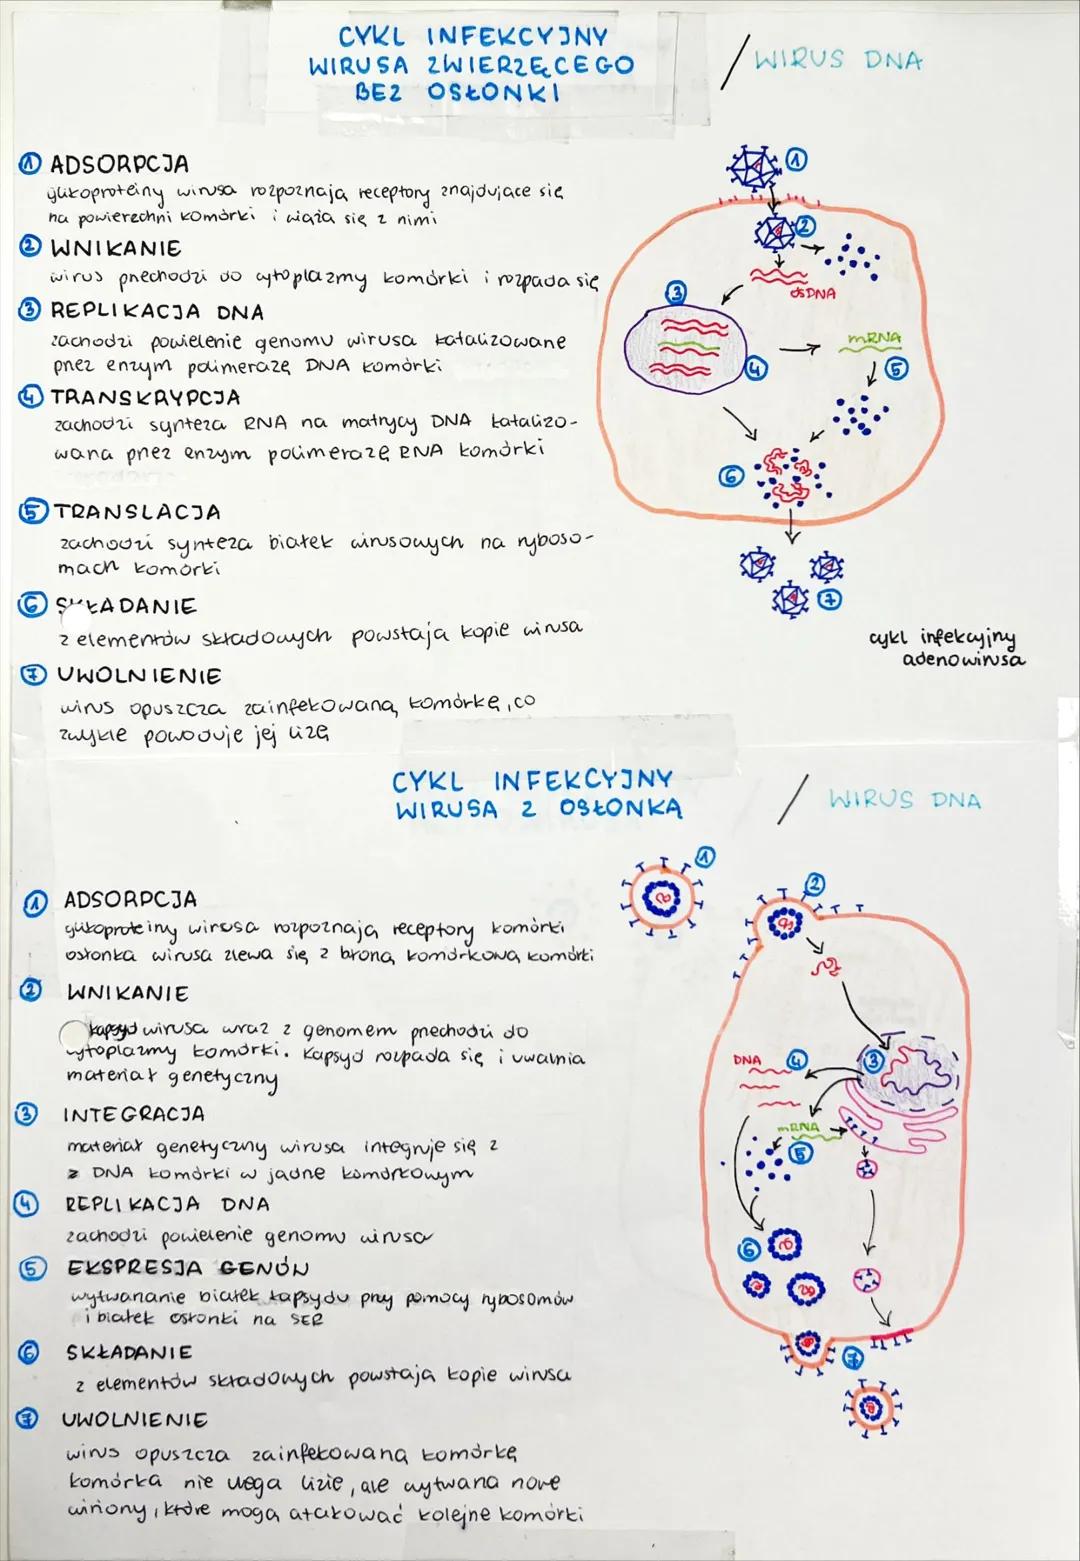 CYKL INFEKCYJNY
WIRUSA ZWIERZĘCEGO
BEZ OSŁONKI
/ WIRUS DNA
1 ADSORPCJA
glikoproteiny wirusa rozpoznają receptory znajdujące się
na powierzchni komórki i wiążą się z nimi
2 WNIKANIE
wirus przechodzi do cytoplazmy komórki i rozpada się
3 REPLIKACJA DNA
zachodzi powielenie genomu wirusa katalizowane
przez enzym polimerazę DNA komórki
4 TRANSKRYPCJA
zachodzi synteza RNA na matrycy DNA katalizo-
wana przez enzym polimerazę RNA komórki
5 TRANSLACJA
zachodzi synteza białek wirusowych na ryboso-
mach komórki
6 SKŁADANIE
z elementów składowych powstają kopie wirusa
7 UWOLNIENIE
wirus opuszcza zainfekowaną komórkę, co
zwykle powoduje jej lizę
1
2
dsDNA
3
mRNA
4
5
6
7
cykl infekcyjny
adenowirusa
CYKL INFEKCYJNY
WIRUSA Z OSŁONKĄ
/ WIRUS DNA
1 ADSORPCJA
glikoproteiny wirusa rozpoznają receptory komórki
osłonka wirusa zlewa się z broną komórkową komórki
2 WNIKANIE
kapsyd wirusa wraz z genomem przechodzi do
cytoplazmy komórki. Kapsyd rozpada się i uwalnia
materiał genetyczny
3 INTEGRACJA
materiał genetyczny wirusa integruje się z
z DNA komórki w jądrze komórkowym
4 REPLIKACJA DNA
zachodzi powielenie genomu wirusa
5 EKSPRESJA GENÓW
wytwananie białek kapsydu przy pomocy rybosomów
i białek osłonki na SER
6 SKŁADANIE
z elementów składowych powstają kopie wirusa
7 UWOLNIENIE
wirus opuszcza zainfekowaną komórkę
komórka nie ulega lizie, ale wytwarza nowe
wiriony, które mogą atakować kolejne komórki
1
2
DNA
4
3
mRNA
5
6
7